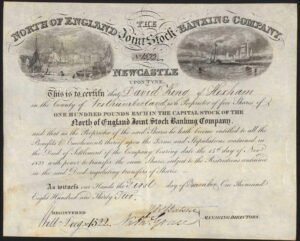 NORTH OF ENGLAND THE BANKING COMPANY
Joint Stock
NEWCASTLE
UPON TYNE
This is to certify that David King of Hexham
in the County of Northumberland is Proprietor of five Shares of £
ONE HUNDRED POUNDS EACH IN THE CAPITAL STOCK OF THE
North of England Joint Stock Banking Company,
and that as the Proprietor of the said Shares he hath become entitled to all the
Benefits & Emoluments thereof upon the Terms and Stipulations contained in
the Deed of Settlement of the Company bearing date the 15th day of Novr
1832 with power to transfer the same Shares subject to the Restrictions contained
in the said Deed regulating transfer of Shares
As witness our Hands the First day of December One Thousand
Eight Hundred and Thirty Two
REGISTERED
MANAGING DIRECTORS